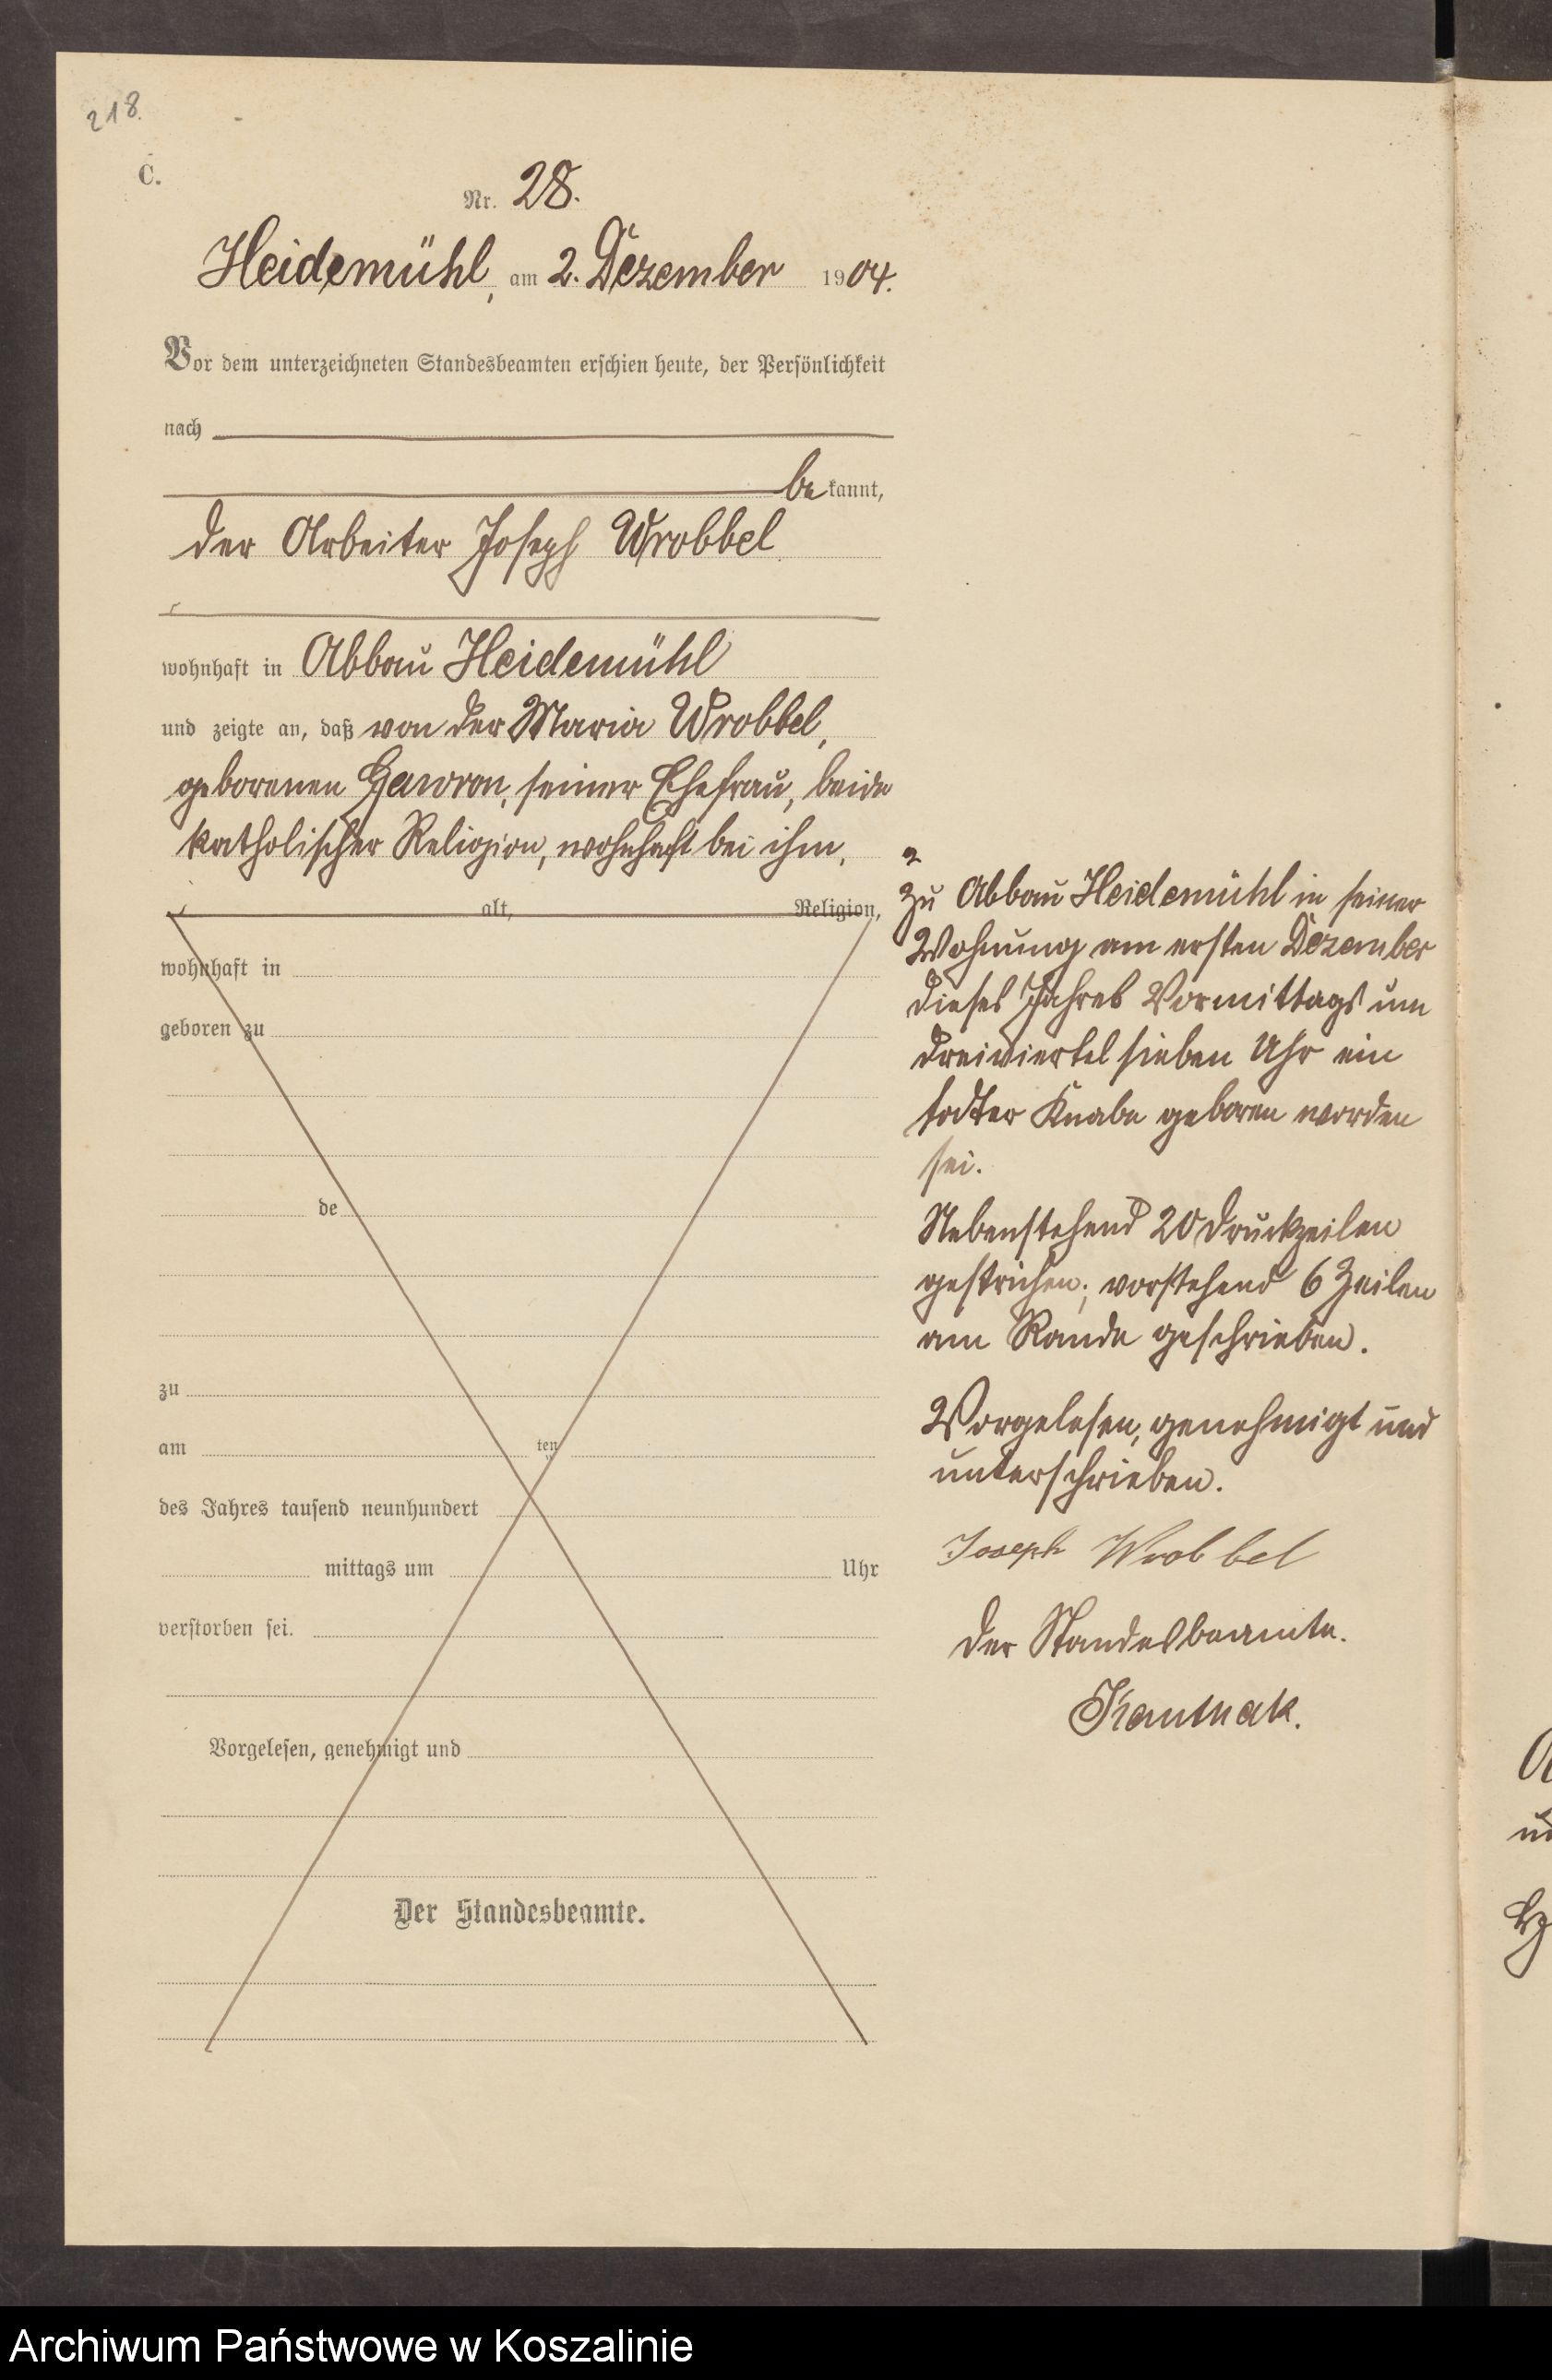 218.
C.
Nr. 28.
Heidemühl, am 2. Dezember 1904.
Vor dem unterzeichneten Standesbeamten erschien heute, der Persönlichkeit
nach
be kannt,
der Arbeiter Joseph Wrobbel
wohnhaft in Abbau Heidemühl
und zeigte an, daß von der Maria Wrobbel,
geborenen Gawron, seiner Ehefrau, beide
katholischer Religion, wohnhaft bei ihm,
alt, Religion,
wohnhaft in
geboren zu
de
zu
am ten
des Jahres tausend neunhundert
mittags um Uhr
verstorben sei.
Vorgelesen, genehmigt und
Der Standesbeamte.
zu Abbau Heidemühl in seiner
Wohnung am ersten Dezember
dieses Jahres Vormittags um
dreiviertel sieben Uhr ein
todter Knabe geboren worden
sei.
Nebenstehend 20 Druckzeilen
gestrichen; vorstehend 6 Zeilen
am Rande geschrieben.
Vorgelesen, genehmigt und
unterschrieben.
Joseph Wrobbel
Der Standesbeamte.
Archiwum Państwowe w Koszalinie